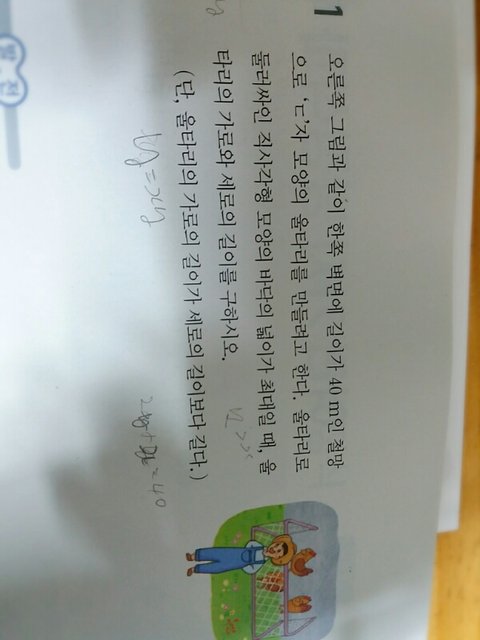 발전
1
오른쪽 그림과 같이 한쪽 벽면에 길이가 40 m인 철망
으로 ‘ㄷ’자 모양의 울타리를 만들려고 한다. 울타리로
둘러싸인 직사각형 모양의 바닥의 넓이가 최대일 때, 울
타리의 가로와 세로의 길이를 구하시오.
(단, 울타리의 가로의 길이가 세로의 길이보다 길다.)